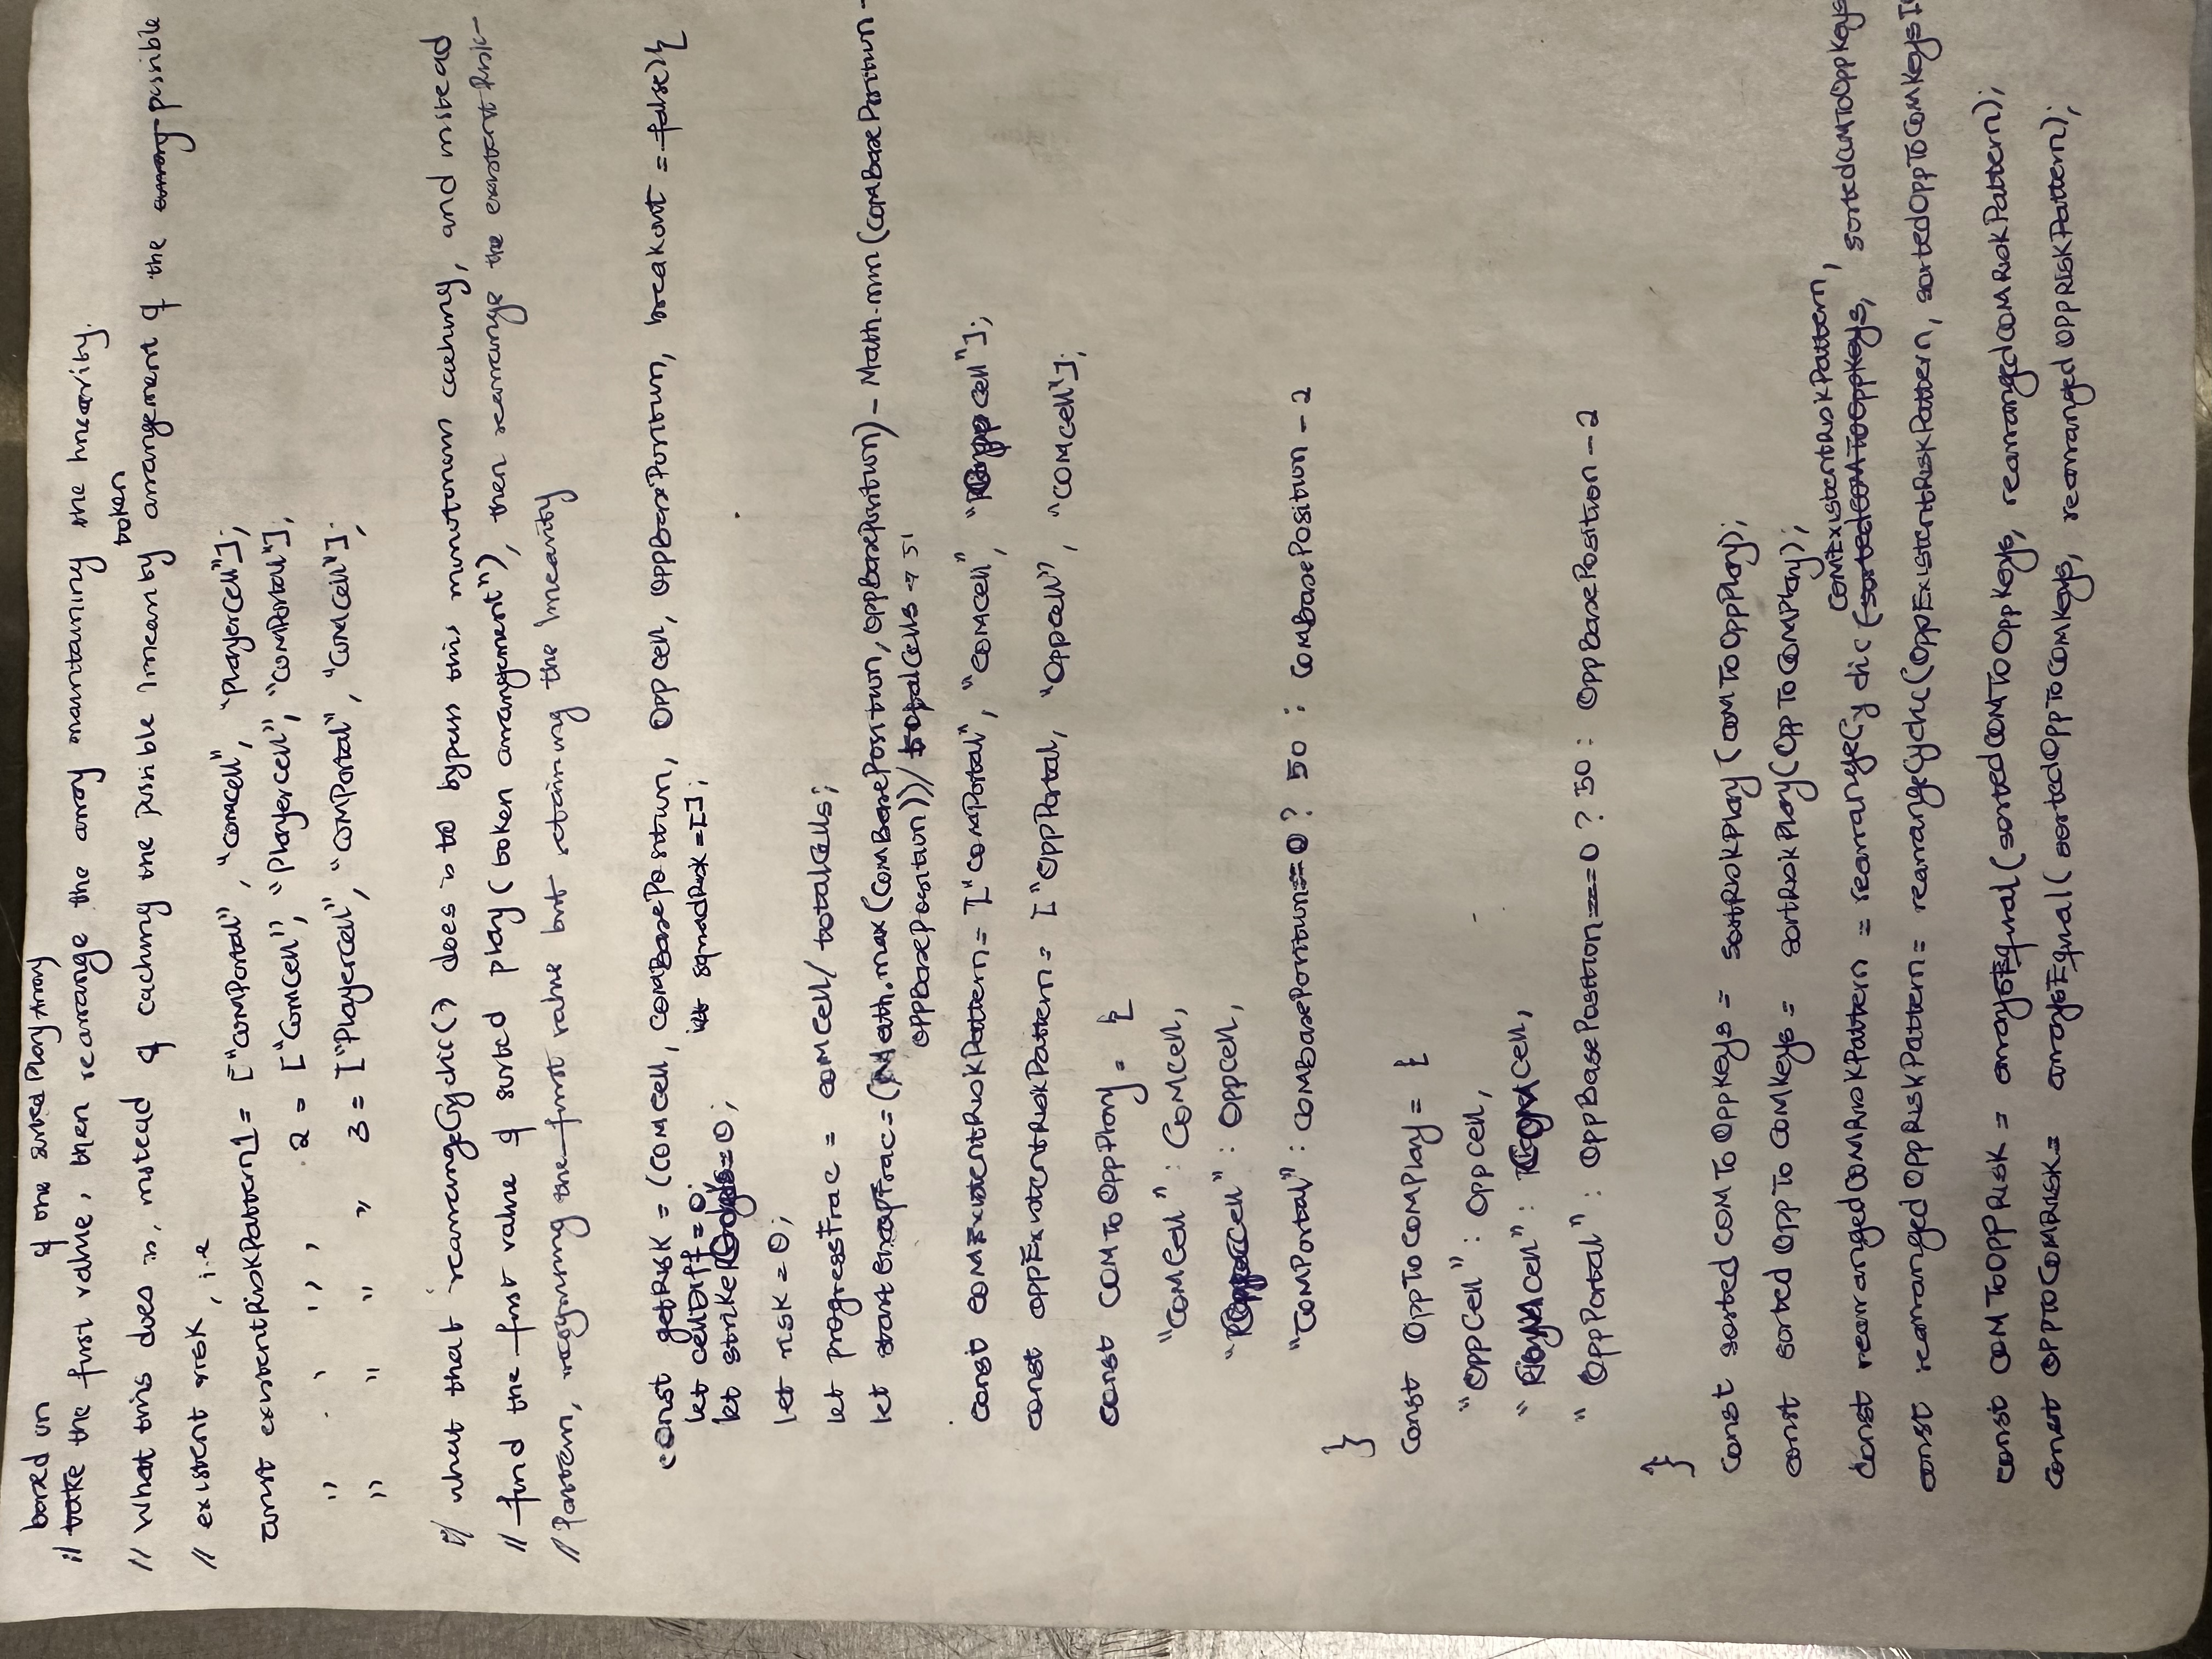 based on of the sorted Play Array
// take the first value, then rearrange the array maintaining the linearity.
token
// What this does is, instead of caching the possible linearity arrangement of the array possible
// existent risk, i.e
const existentRiskPattern1 = ["COMPortal", "comcell", "playercell"];
,, , ,, , 2 = ["ComCell", "Playercell", "COMPortal"];
,, ,, ,, ,, 3 = ["Playercell", "COMPortal", "COMCell"];
// what that rearrangeCyclic() does is to bypass this monotonous caching, and instead
// find the first value of sorted play (token arrangementⁿ), then rearrange the existentRisk-
// Pattern, recognising the first value but retaining the linearity
const getRisk = (COMCell, COMBasePosition, Oppcell, OppBasePosition, breakout = false){
let cellDiff = 0; let squadRisk = [];
let strikeOdds = 0;
let risk = 0;
let progressFrac = COMCell/ totalCells;
let startGapFrac = (Math.max(COMBasePosition, OppBasePosition) - Math.min(COMBasePosition -
OppBasePosition))/ totalCells → 51
const COMExistentRiskPattern = ["COMPortal", "COMcell", "Oppcell"];
const oppExistentRiskPattern = ["OppPortal, "Oppcell", "COMcell"];
const COMToOppPlay = {
"COMCell" : COMcell,
"OppCell" : Oppcell,
"COMPortal" : COMBasePosition === 0 ? 50 : COMBasePosition - 2
}
const OppToCOMPlay = {
"OppCell" : Oppcell,
"COMcell" : COMcell,
"OppPortal" : OppBasePosition === 0 ? 50 : OppBasePosition - 2
}
const sortedCOMToOppKeys = sortRiskPlay(COMToOppPlay);
const sortedOppToCOMKeys = sortRiskPlay(OppToCOMPlay);
COMExistentRiskPattern,
const rearrangedCOMRiskPattern = rearrangeCyclic(sortedCOMToOppKeys, sortedCOMToOppKeys
const rearrangedOppRiskPattern = rearrangeCyclic(OppExistentRiskPattern, sortedOppToCOMKeys[
const COMToOppRisk = arraysEqual(sortedCOMToOppKeys, rearrangedCOMRiskPattern);
const OppToCOMRisk = arraysEqual(sortedOppToCOMKeys, rearrangedOppRiskPattern);